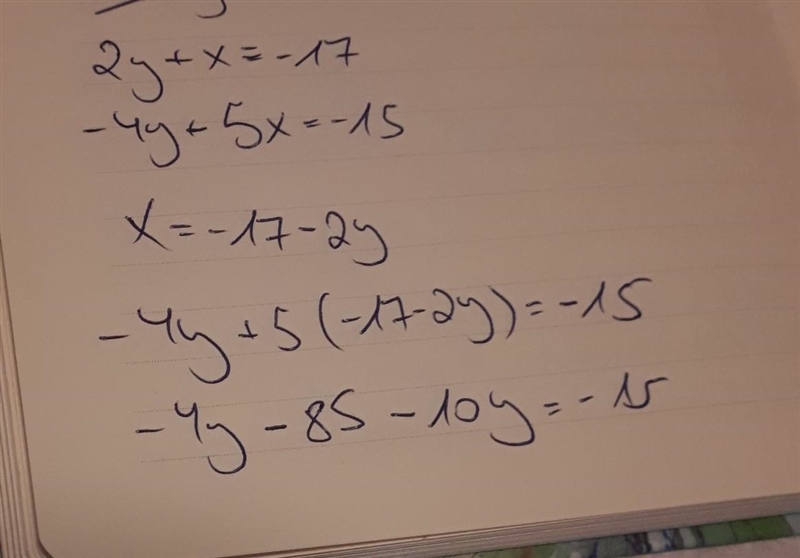 2y + x = -17
-4y + 5x = -15
x = -17 - 2y
-4y + 5 (-17 - 2y) = -15
-4y - 85 - 10y = -15